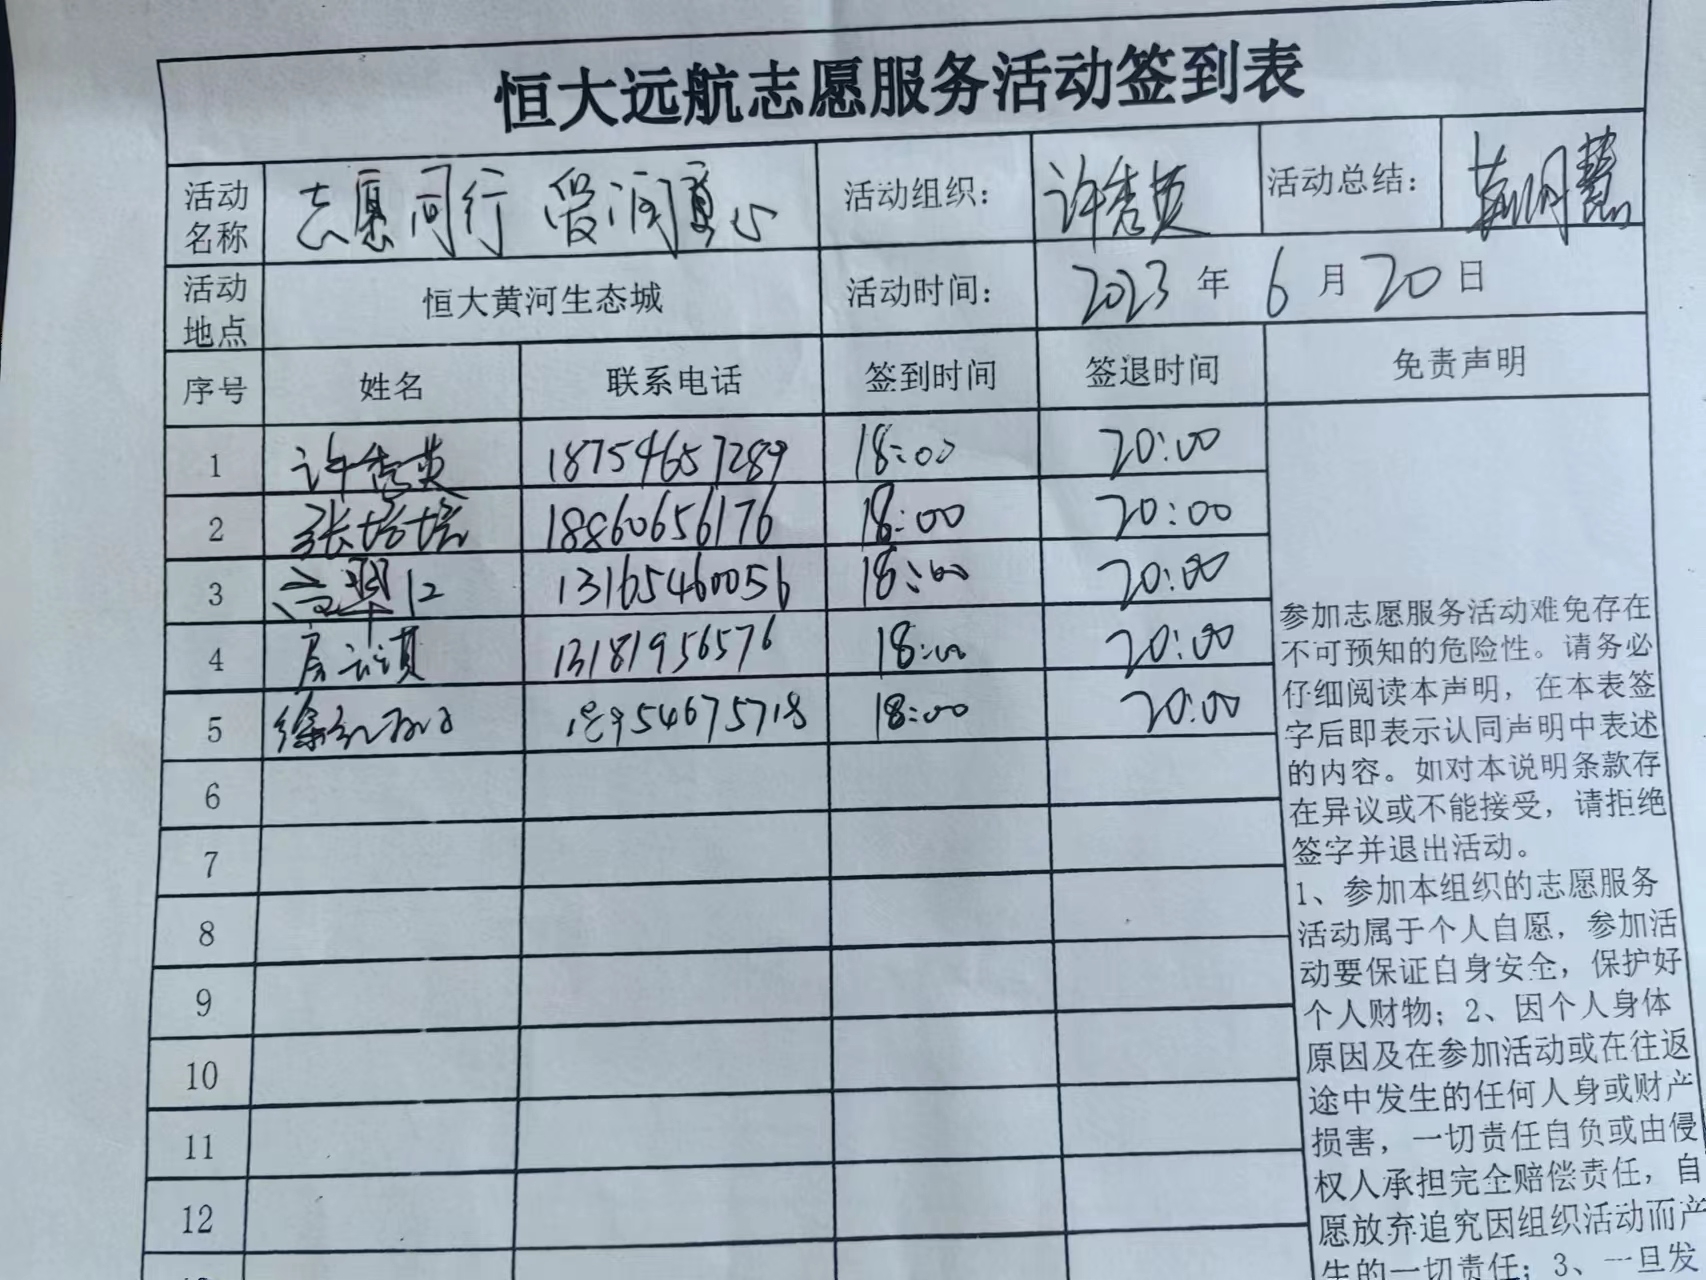 恒大远航志愿服务活动签到表
活动名称 志愿同行 爱润童心 活动组织： 许秀英 活动总结：
活动地点 恒大黄河生态城 活动时间： 2023 年 6 月 20 日
序号 姓名 联系电话 签到时间 签退时间 免责声明
1 许秀英 18754657289 18:00 20:00
2 张培培 18860656176 18:00 20:00
3 高翠仁 13165460056 18:00 20:00
4 13181956576 18:00 20:00
5 18:00 20:00
6
7
8
9
10
11
12
参加志愿服务活动难免存在
不可预知的危险性。请务必
仔细阅读本声明，在本表签
字后即表示认同声明中表述
的内容。如对本说明条款存
在异议或不能接受，请拒绝
签字并退出活动。
1、参加本组织的志愿服务
活动属于个人自愿，参加活
动要保证自身安全，保护好
个人财物；2、因个人身体
原因及在参加活动或在往返
途中发生的任何人身或财产
损害，一切责任自负或由侵
权人承担完全赔偿责任，自
愿放弃追究因组织活动而产
生的一切责任；3、一旦发